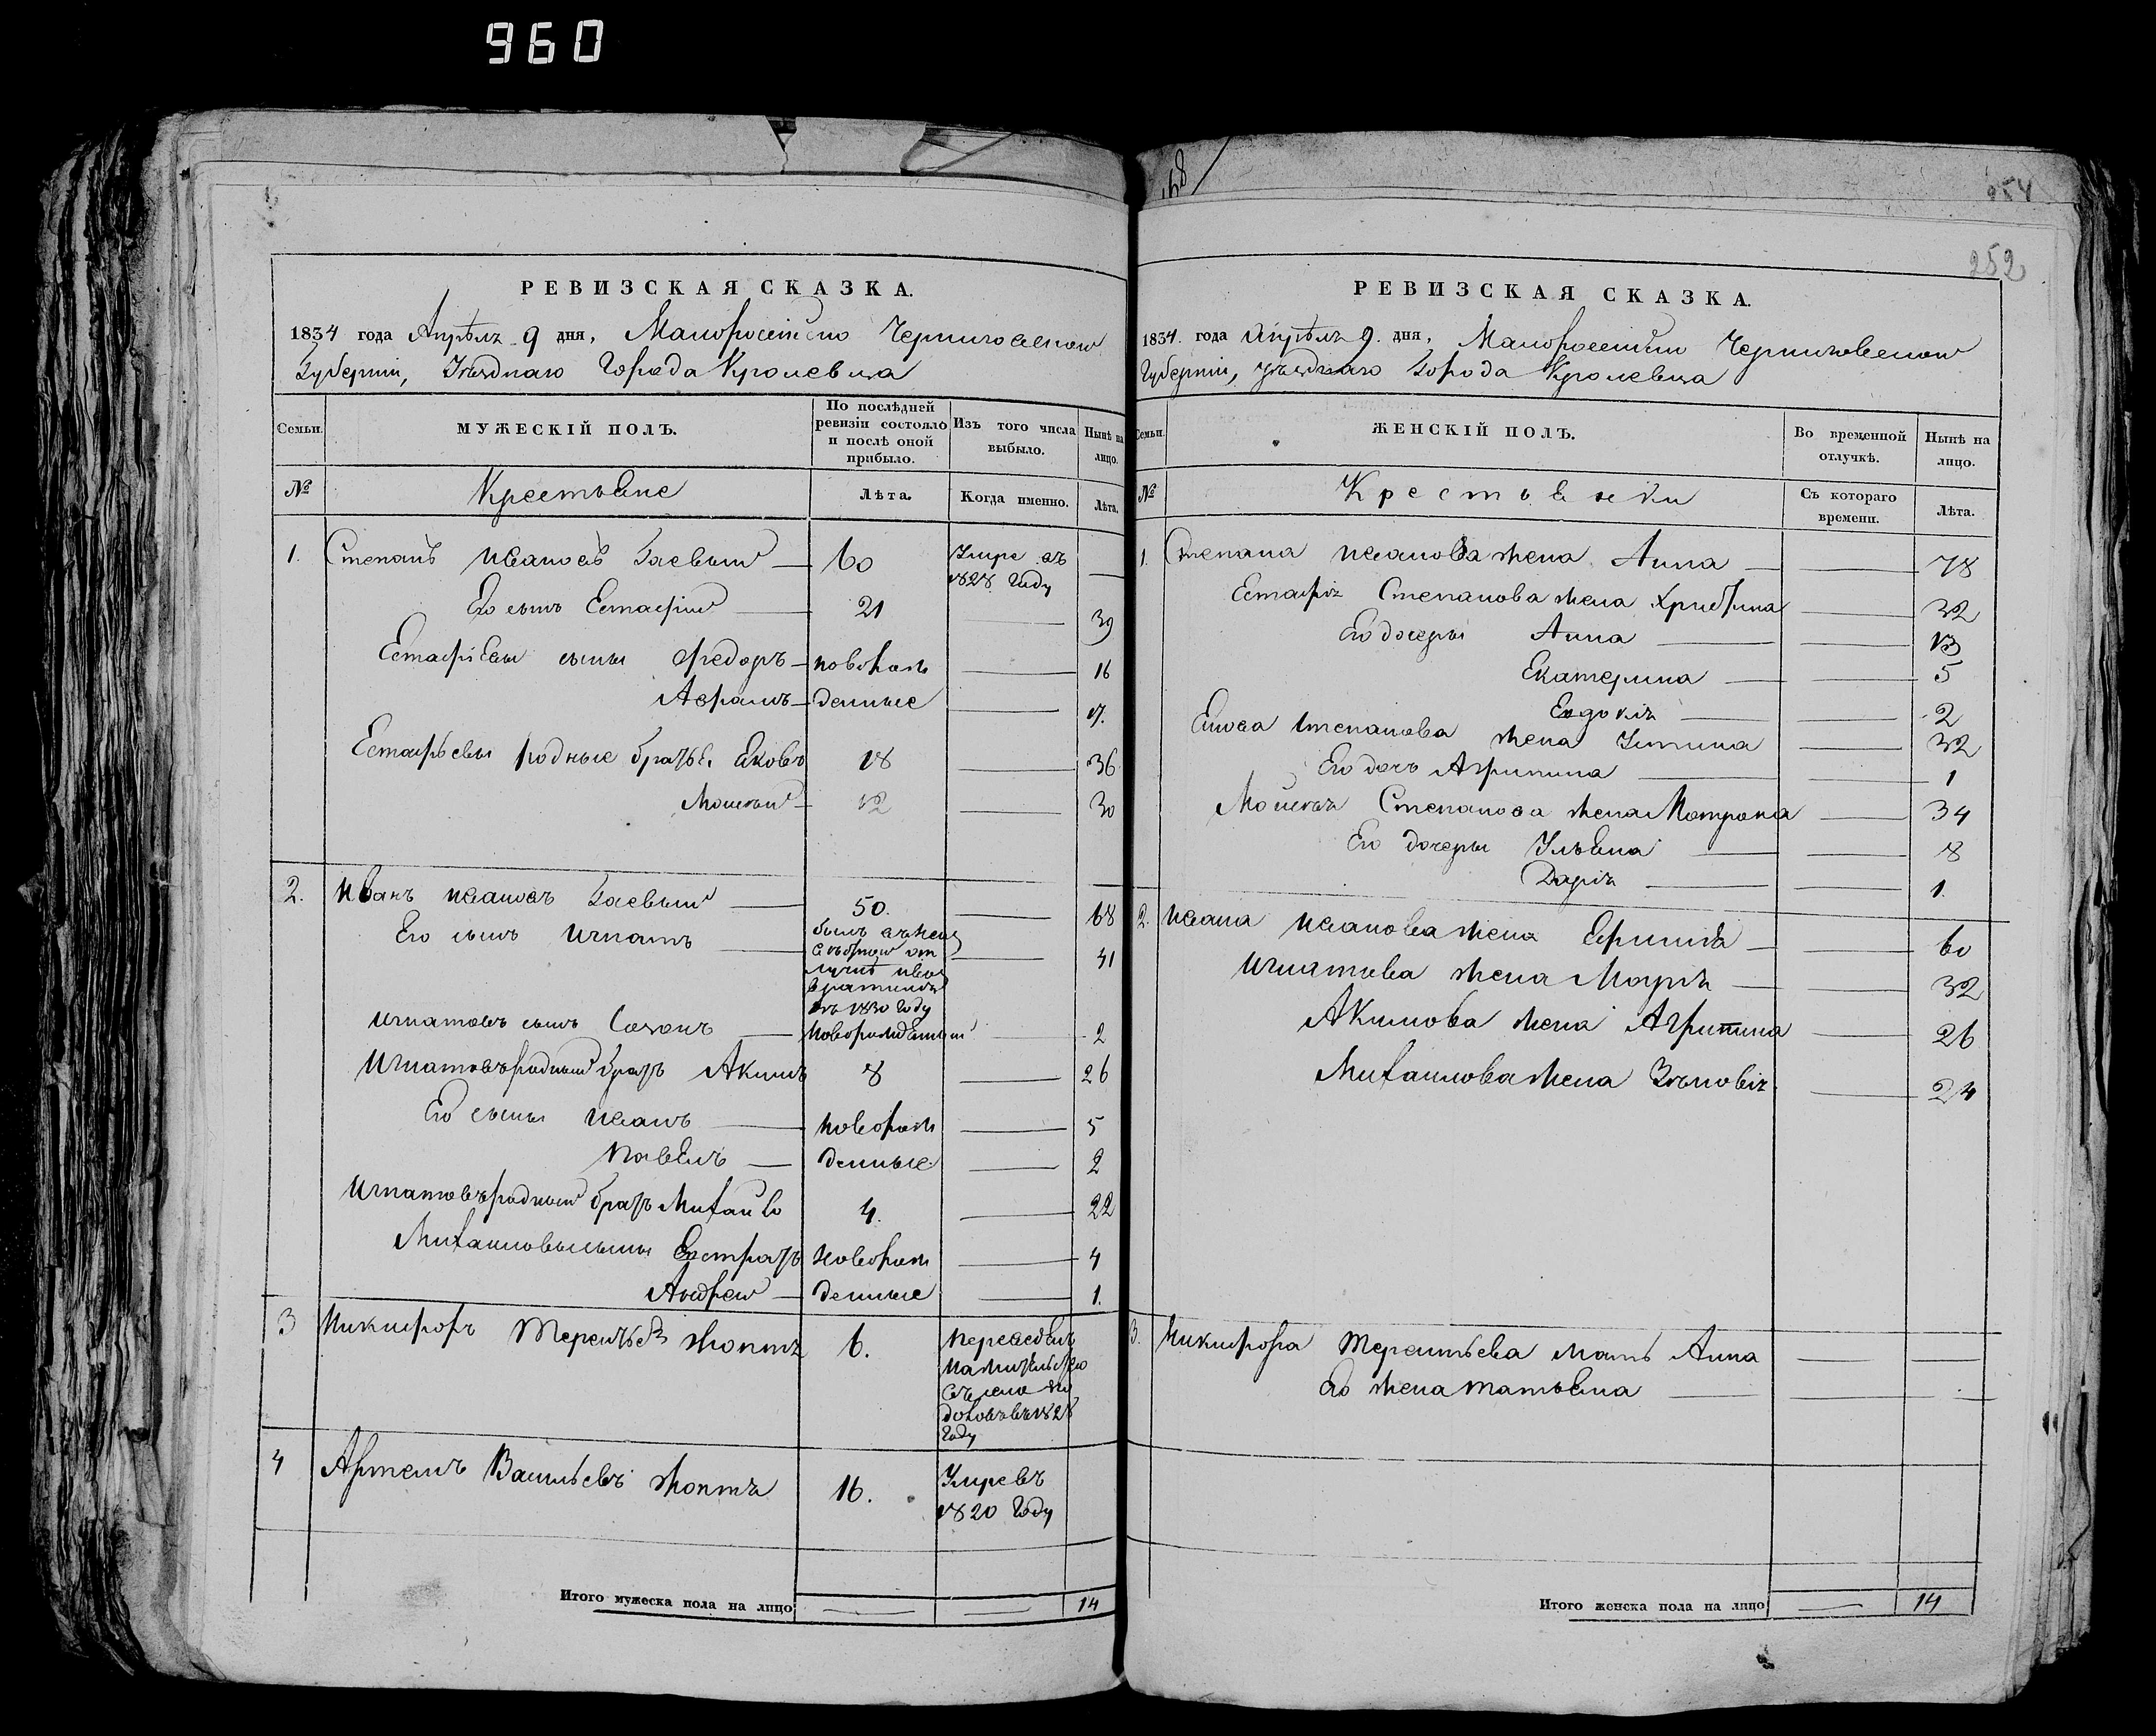 960
168
254
252
РЕВИЗСКАЯ СКАЗКА.
1834 года Апрѣля 9 дня, Малоросійско Черниговской
Губерніи, Уѣзднаго Города Кролевца
Семьи.
МУЖЕСКІЙ ПОЛЪ.
По послѣдней ревизіи состояло и послѣ оной прибыло.
Изъ того числа выбыло.
Нынѣ на лицо.
№
Крестьяне
Лѣта.
Когда именно.
Лѣта.
1. Степанъ Ивановъ Гаевый — 60 Умре въ 1828 Году —
Его сынъ Естафій — 21 — 39
Естафіевы сыны Федоръ — новорож — 16
Аврамъ — денные — 17.
Естафьевы родные братья Яковъ 18 — 36
Мойсей — 12 — 30
2. Иванъ Ивановъ Гаевый — 50. — 68
Его сынъ Игнатъ — — 41
былъ
лучкѣ
въ 1830 Году
Игнатовъ сынъ — новорожденный — 2
Игнатовъ родный братъ Акимъ 8 — 26
Его сыны Иванъ — новорож — 5
Павелъ — денные — 2
Игнатовъ родный братъ Михайло 4. — 22
Михайловы сыны Евстратъ новорож — 4
Андрей — денные — 1.
3 Никифоръ Терентьевъ 6.
4 Артемъ Васильевъ 16. Умре въ
1820 Году
Итого мужеска пола на лицо — — 14
РЕВИЗСКАЯ СКАЗКА.
1834. года Апрѣля 9. дня, Малоросійско Черниговской
Губерніи, уѣзднаго Города Кролевца
Семьи.
ЖЕНСКІЙ ПОЛЪ.
Во временной отлучкѣ.
Нынѣ на лицо.
№
Крестьянки
Съ котораго времени.
Лѣта.
1. Степана Иванова жена Анна — — 78
Естафія Степанова жена Христина — 32
Его дочеры Анна — — 13
Екатерина — — 5
Евдокія — — 2
Якова Степанова жена Устина — 32
Его дочь Агрипина — — 1
Мойсея Степанова жена Мотрона — 34
Его дочеры Ульяна — — 8
Дарія — — 1.
2. Ивана Иванова жена — — 60
Игнатова жена Марія — — 32
Акимова жена Агрипина — 26
Михайлова жена Зѣновія — 24
3. Никифора Терентьева мать Анна — —
Его жена Татьяна — —
Итого женска пола на лицо — 14